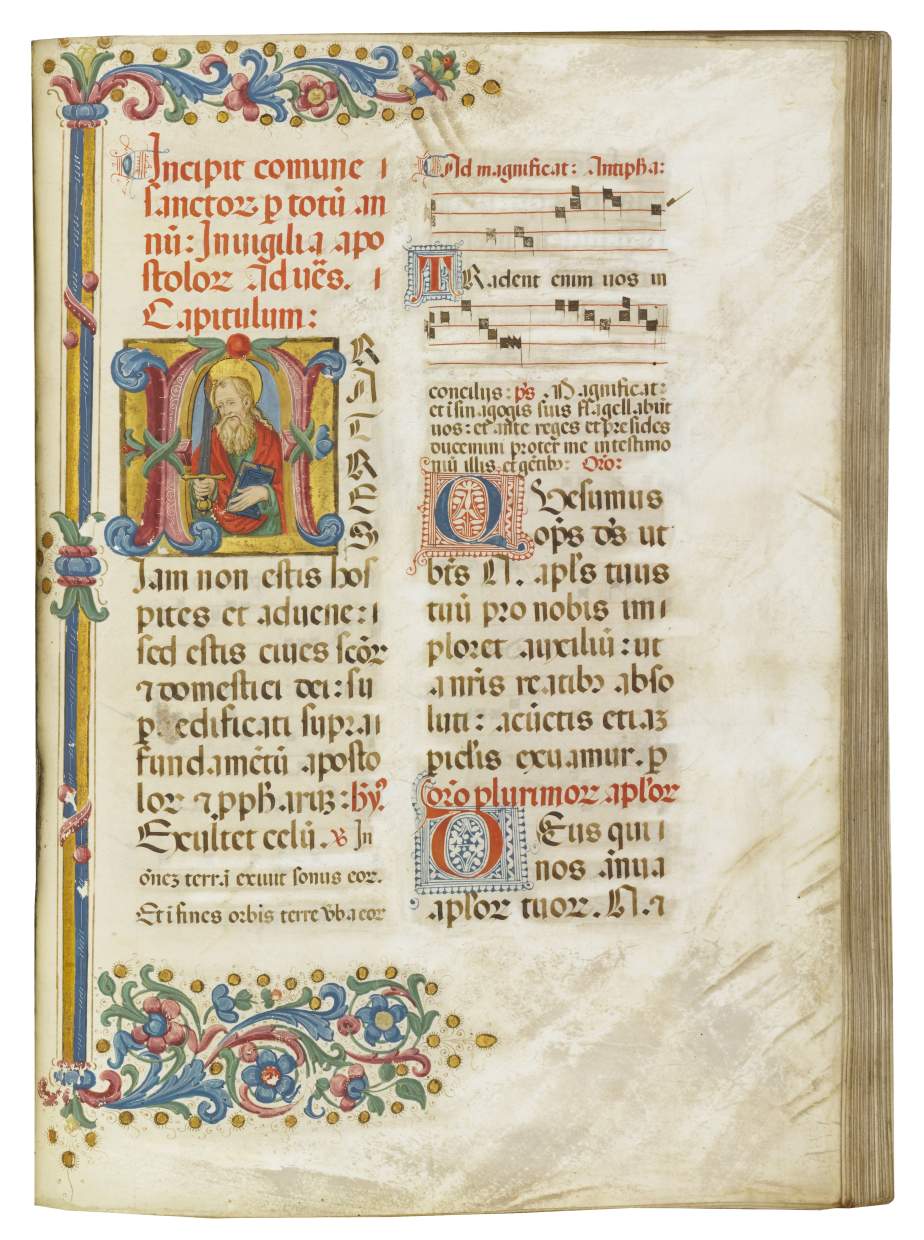 Incipit comune
sanctoꝝ ꝑ totū an
nū: In uigilia apo
stoloꝝ Ad uēs.
Capitulum:
FRATRES
Iam non estis hos
pites et aduene:
sed estis ciues scōꝝ
⁊ domestici dei: su
ꝑ edificati supra
fundamētū aposto
loꝝ ⁊ ꝓpħarūꝫ: hy̾.
Exultet celū. ℣ In
oēꝫ terrā exiuit sonus eoꝝ.
Et ī fines orbis terre v̄ba eoꝝ
Ad magnificat: Antipħa:
TRadent enim uos in
concilijs: p̄s Magnificat:
et ī sinagogis suis flagellabūt
uos: et ante reges et presides
ducemini propter me in testimo
niū illis et gētibꝫ: Orō:
QVesumus
om̄ps d̄s ut
bt̄s N. apl̄s tuus
tuū pro nobis im
ploret auxiliū: ut
a nr̄is reatibꝫ abso
luti: a cūctis etiaꝫ
ꝑicl̄is exuamur. ꝑ
orō plurimoꝝ apl̄oꝝ
DEus qui
nos ānua
apl̄oꝝ tuoꝝ. N. ⁊